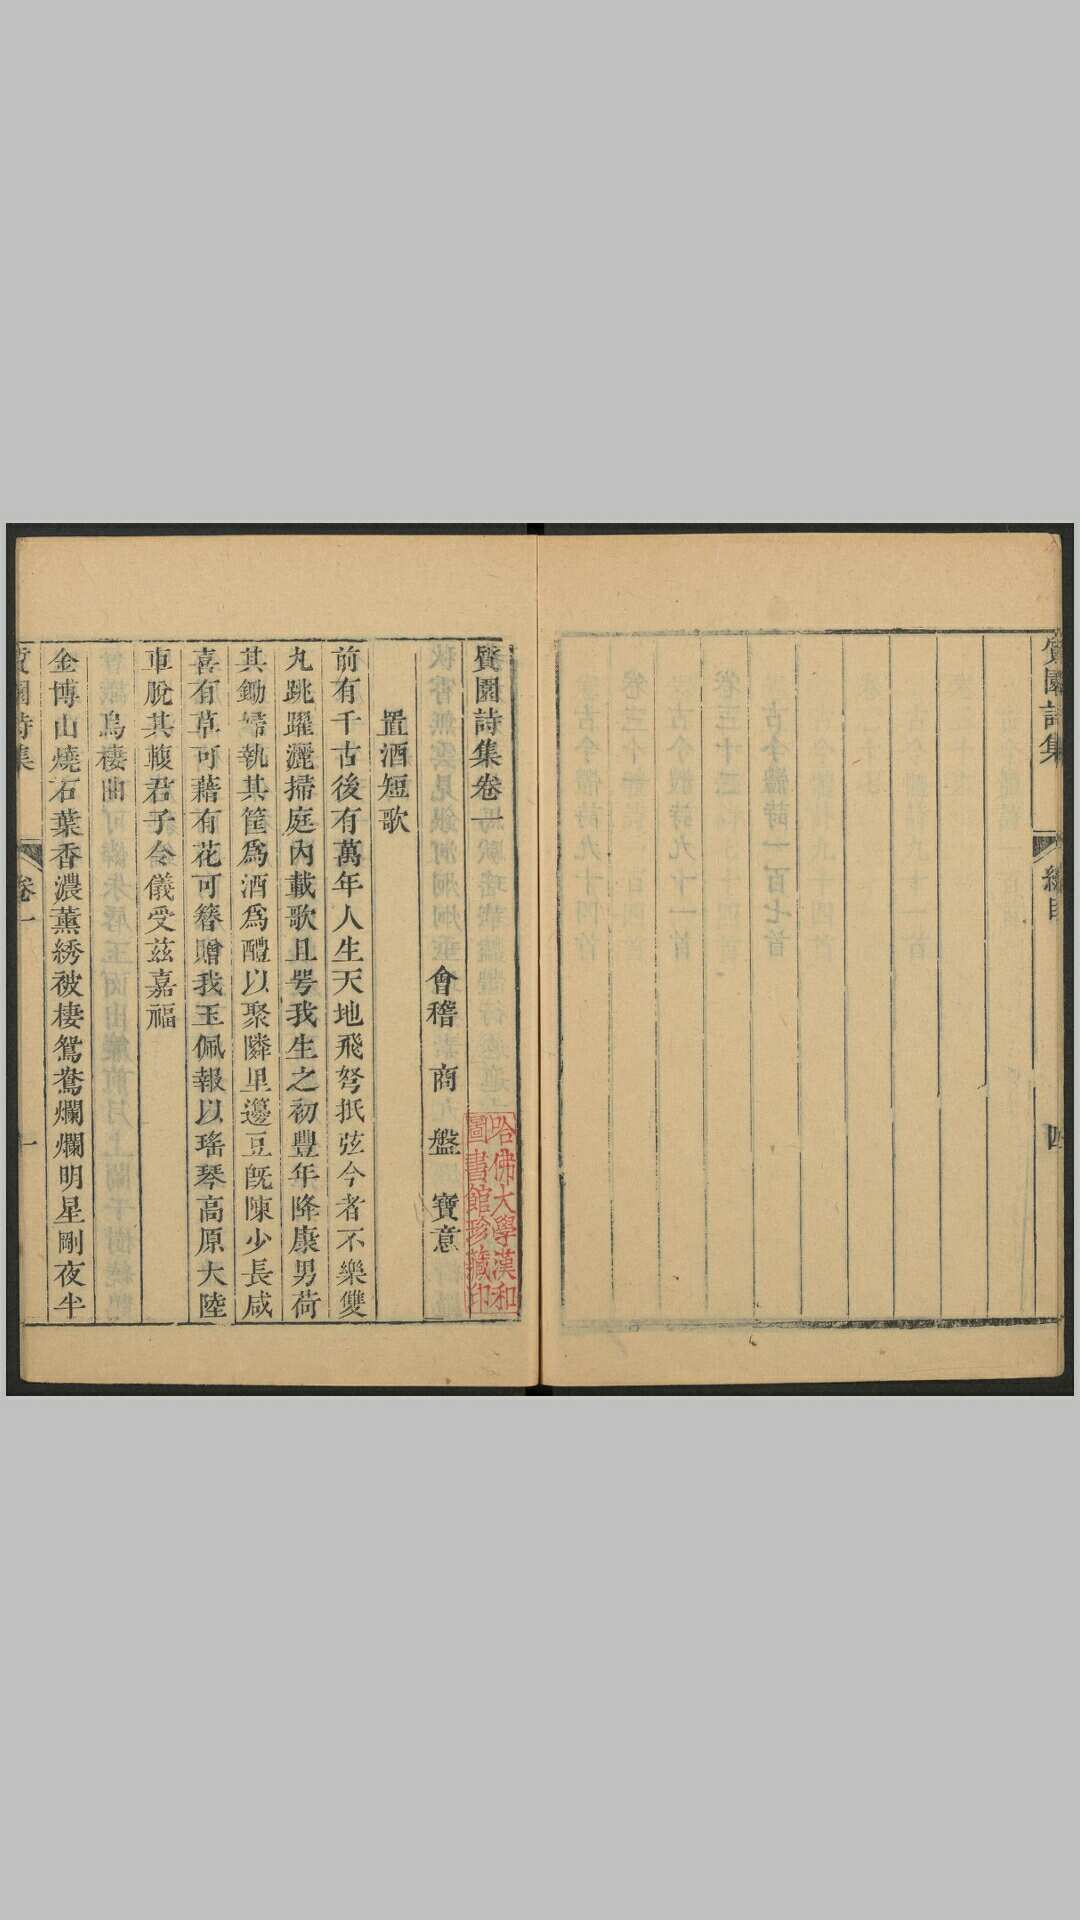 質園詩集
質園詩集卷一
會稽 商 盤 寶意
置酒短歌
前有千古後有萬年人生天地飛弩抵弦今者不樂雙
丸跳躍灑掃庭內載歌且咢我生之初豐年降康男荷
其鋤婦執其筐爲酒爲醴以聚隣里籩豆旣陳少長咸
喜有草可藉有花可簪贈我玉佩報以瑤琴高原大陸
車脫其輹君子令儀受茲嘉福
烏棲曲
金博山燒石葉香濃薰綉被棲鴛鴦爛爛明星剛夜半
質園詩集
卷一
哈佛大學漢和
圖書館珍藏印